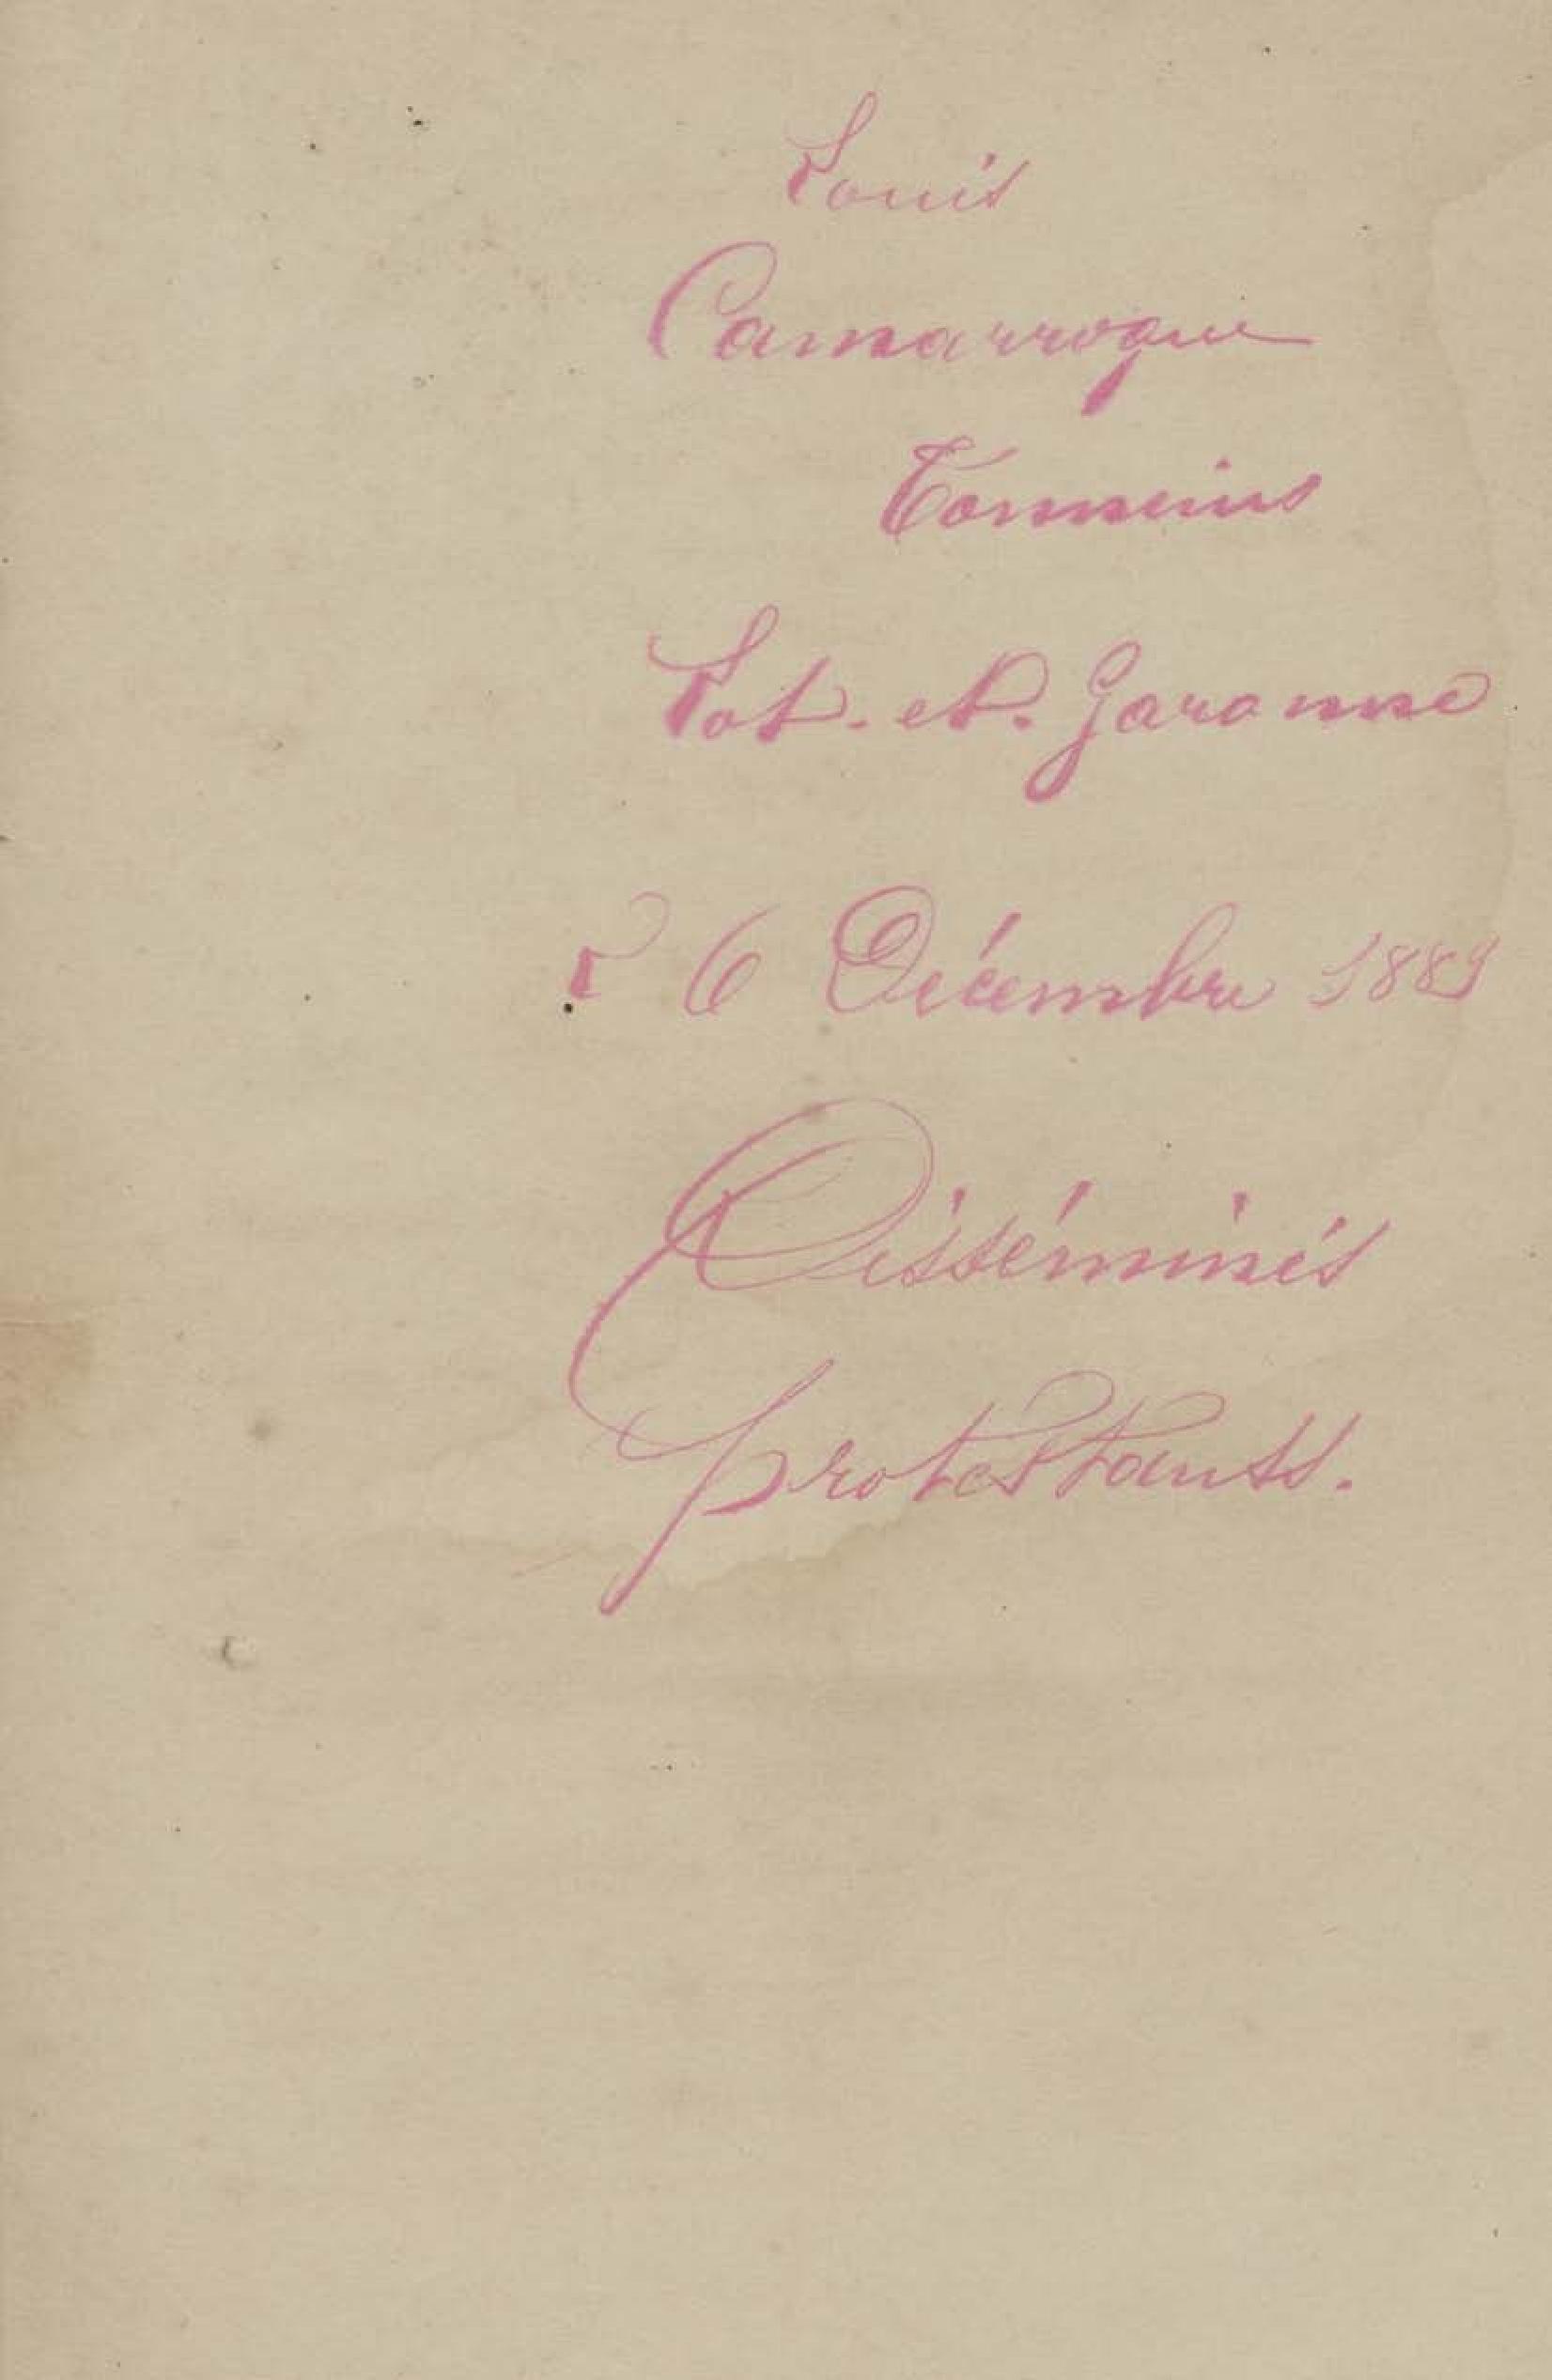 Louis
Camarroque
Tonneins
Lot. et. Garonne
26 Décembre 1889
Disséminés
protestants.